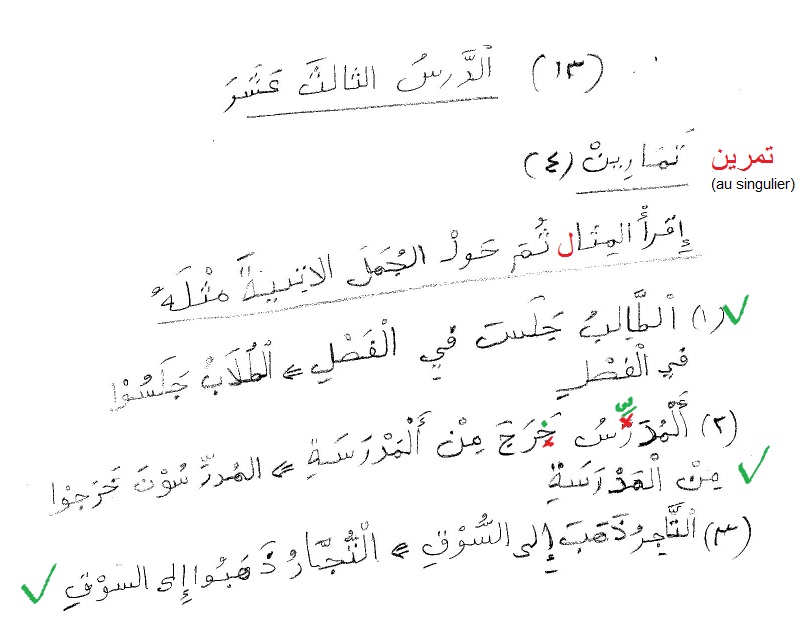 (١٣) اَلدَّرسُ الثالثَ عَشَرَ
تَمَارِينْ (٤) تمرين
(au singulier)
إِقرأْ المِثال ثُمَ حَولْ الجُمَلَ الاتيةَ مثْلَهُ
(١) اَلطَّالِبُ جَلَسَ في الْفَصْلِ ⇐ الْطُلَابُ جَلَسُوْا
في الْفَصْلِ
(٢) أَلْمُدَرِّسُ خَرَجَ مِنْ أَلْمَدْرَسَةِ ⇐ المُدرِّسُوْنَ خَرَجُوْا
مِنْ الْمَدْرَسَةِ
(٣) اَلتَّاجِرُ ذَهَبَ إِلى السُّوْقِ ⇐ الْتُجَّارُ ذَهَبُوا إِلى السوْقِ